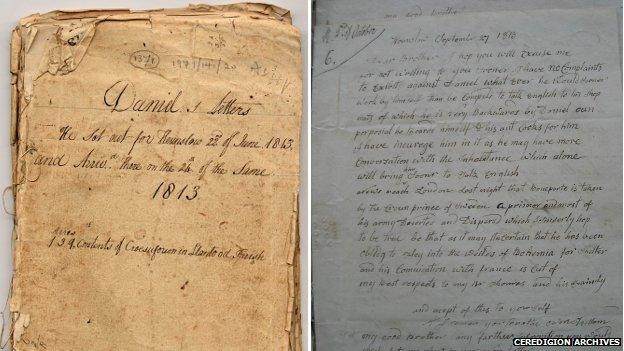 1371
1991/141/20
Daniel's letters
He Sot out for Hounslow 22d of June 1813
and Arived there on the 24 of the Same
1813
Acres
139 Contents of Croesyforwin in Llandood Parish
my good brother
5th of October
6.
Hounslow September 27 1813
Dear Brother I hop you will Excuse me
for not writing to you sooner I have no Complaints
to Exibit against Daniel what Ever he would sooner
work by himself than be Compeld to talk English to his Shop
mats of which he is very Backwards by Daniel own
proposal he boards himself & his ant Cooks for him
I have incurege him in it as he may have more
Conversation with the Inhabitance which alone
will bring him Sooner to Talk English
news reach London last night that Boneparte is taken
by the Crown prince of Sweeden a prisoner and most of
his army Deserted and Dispersd which I sincerly hop
to be true be that as it may it is certain that he has been
Oblig to retey into the Wiles of Bohemia for Shelter
and his Comunication with france is Cut of
my best respects to my Br Thomas and his family
and axept of this to yourself
my good brother any farther
CEREDIGION ARCHIVES